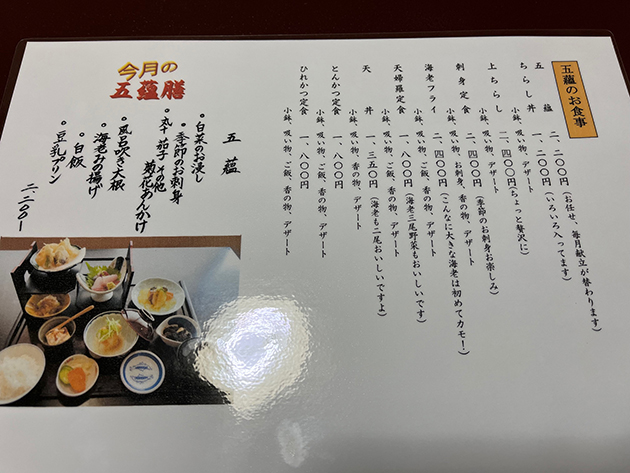 五蘊のお食事
五　蘊　二、二〇〇円(お任せ、毎月献立が替わります)
ちらし丼　一、二〇〇円(いろいろ入ってます)
小鉢、吸い物、デザート
上ちらし　二、四〇〇円(ちょっと贅沢に)
小鉢、吸い物、デザート
刺身定食　二、四〇〇円(季節のお刺身お楽しみ)
小鉢、吸い物、お刺身、香の物、デザート
海老フライ　二、四〇〇円(こんなに大きな海老は初めてカモ!)
小鉢、吸い物、ご飯、香の物、デザート
天婦羅定食　一、八〇〇円(海老三尾野菜もおいしいです)
小鉢、吸い物、ご飯、香の物、デザート
天　丼　一、三五〇円(海老も二尾おいしいですよ)
小鉢、吸い物、香の物、デザート
とんかつ定食　一、八〇〇円
小鉢、吸い物、ご飯、香の物、デザート
ひれかつ定食　一、八〇〇円
小鉢、吸い物、ご飯、香の物、デザート
今月の
五蘊膳
五　蘊
・白菜のお浸し
・季節のお刺身
・丸十 茄子 その他
菊花あんかけ
・風呂吹き大根
・海老みの揚げ
・白飯
・豆乳プリン
二、二〇〇ー